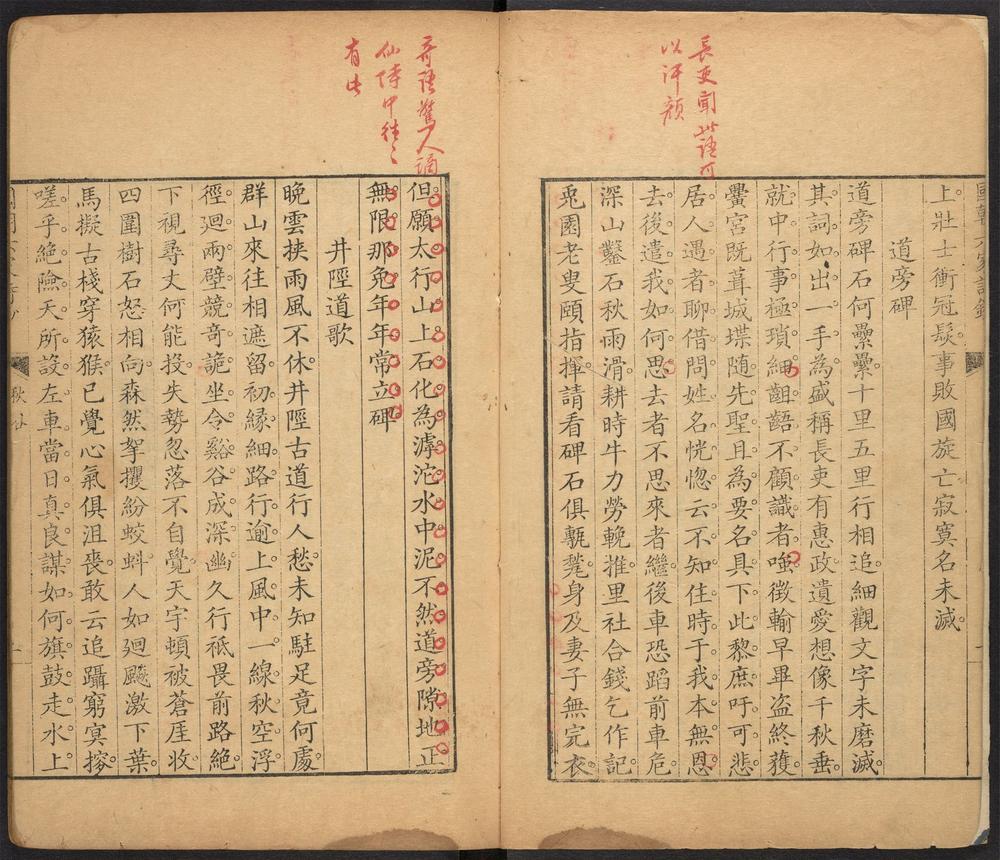 長吏聞此語可
以汗顏
國朝六家詩鈔
上壯士衝冠髮事敗國旋亡寂寞名未滅
道旁碑
道旁碑石何纍纍十里五里行相追細觀文字未磨滅
其詞如出一手為盛稱長吏有惠政遺愛想像千秋垂
就中行事極瑣細齟齬不顧識者嗤徵輸早畢盜終獲
黌宮既葺城堞隨先聖且為要名具下此黎庶吁可悲
居人遇者聊借問姓名恍惚云不知住時于我本無恩
去後遣我如何思去者不思來者繼後車恐蹈前車危
深山鑿石秋雨滑耕時牛力勞輓推里社合錢乞作記
兎園老叟頤指揮請看碑石俱甎甃身及妻子無完衣
奇語驚人謫
仙詩中往〻
有此
但願太行山上石化為滹沱水中泥不然道旁隙地正
無限那免年年常立碑
井陘道歌
晚雲挾雨風不休井陘古道行人愁未知駐足竟何處
群山來往相遮留初緣細路行逾上風中一線秋空浮
徑廻兩壁競奇詭坐令谿谷成深幽久行祗畏前路絕
下視尋丈何能投失勢忽落不自覺天宇頓被蒼厓收
四圍樹石怒相向森然拏攫紛蛟蚪人如廻飈激下葉
馬擬古棧穿猿猴已覺心氣俱沮喪敢云追躡窮冥搜
嗟乎絕險天所設左車當日真良謀如何旗鼓走水上